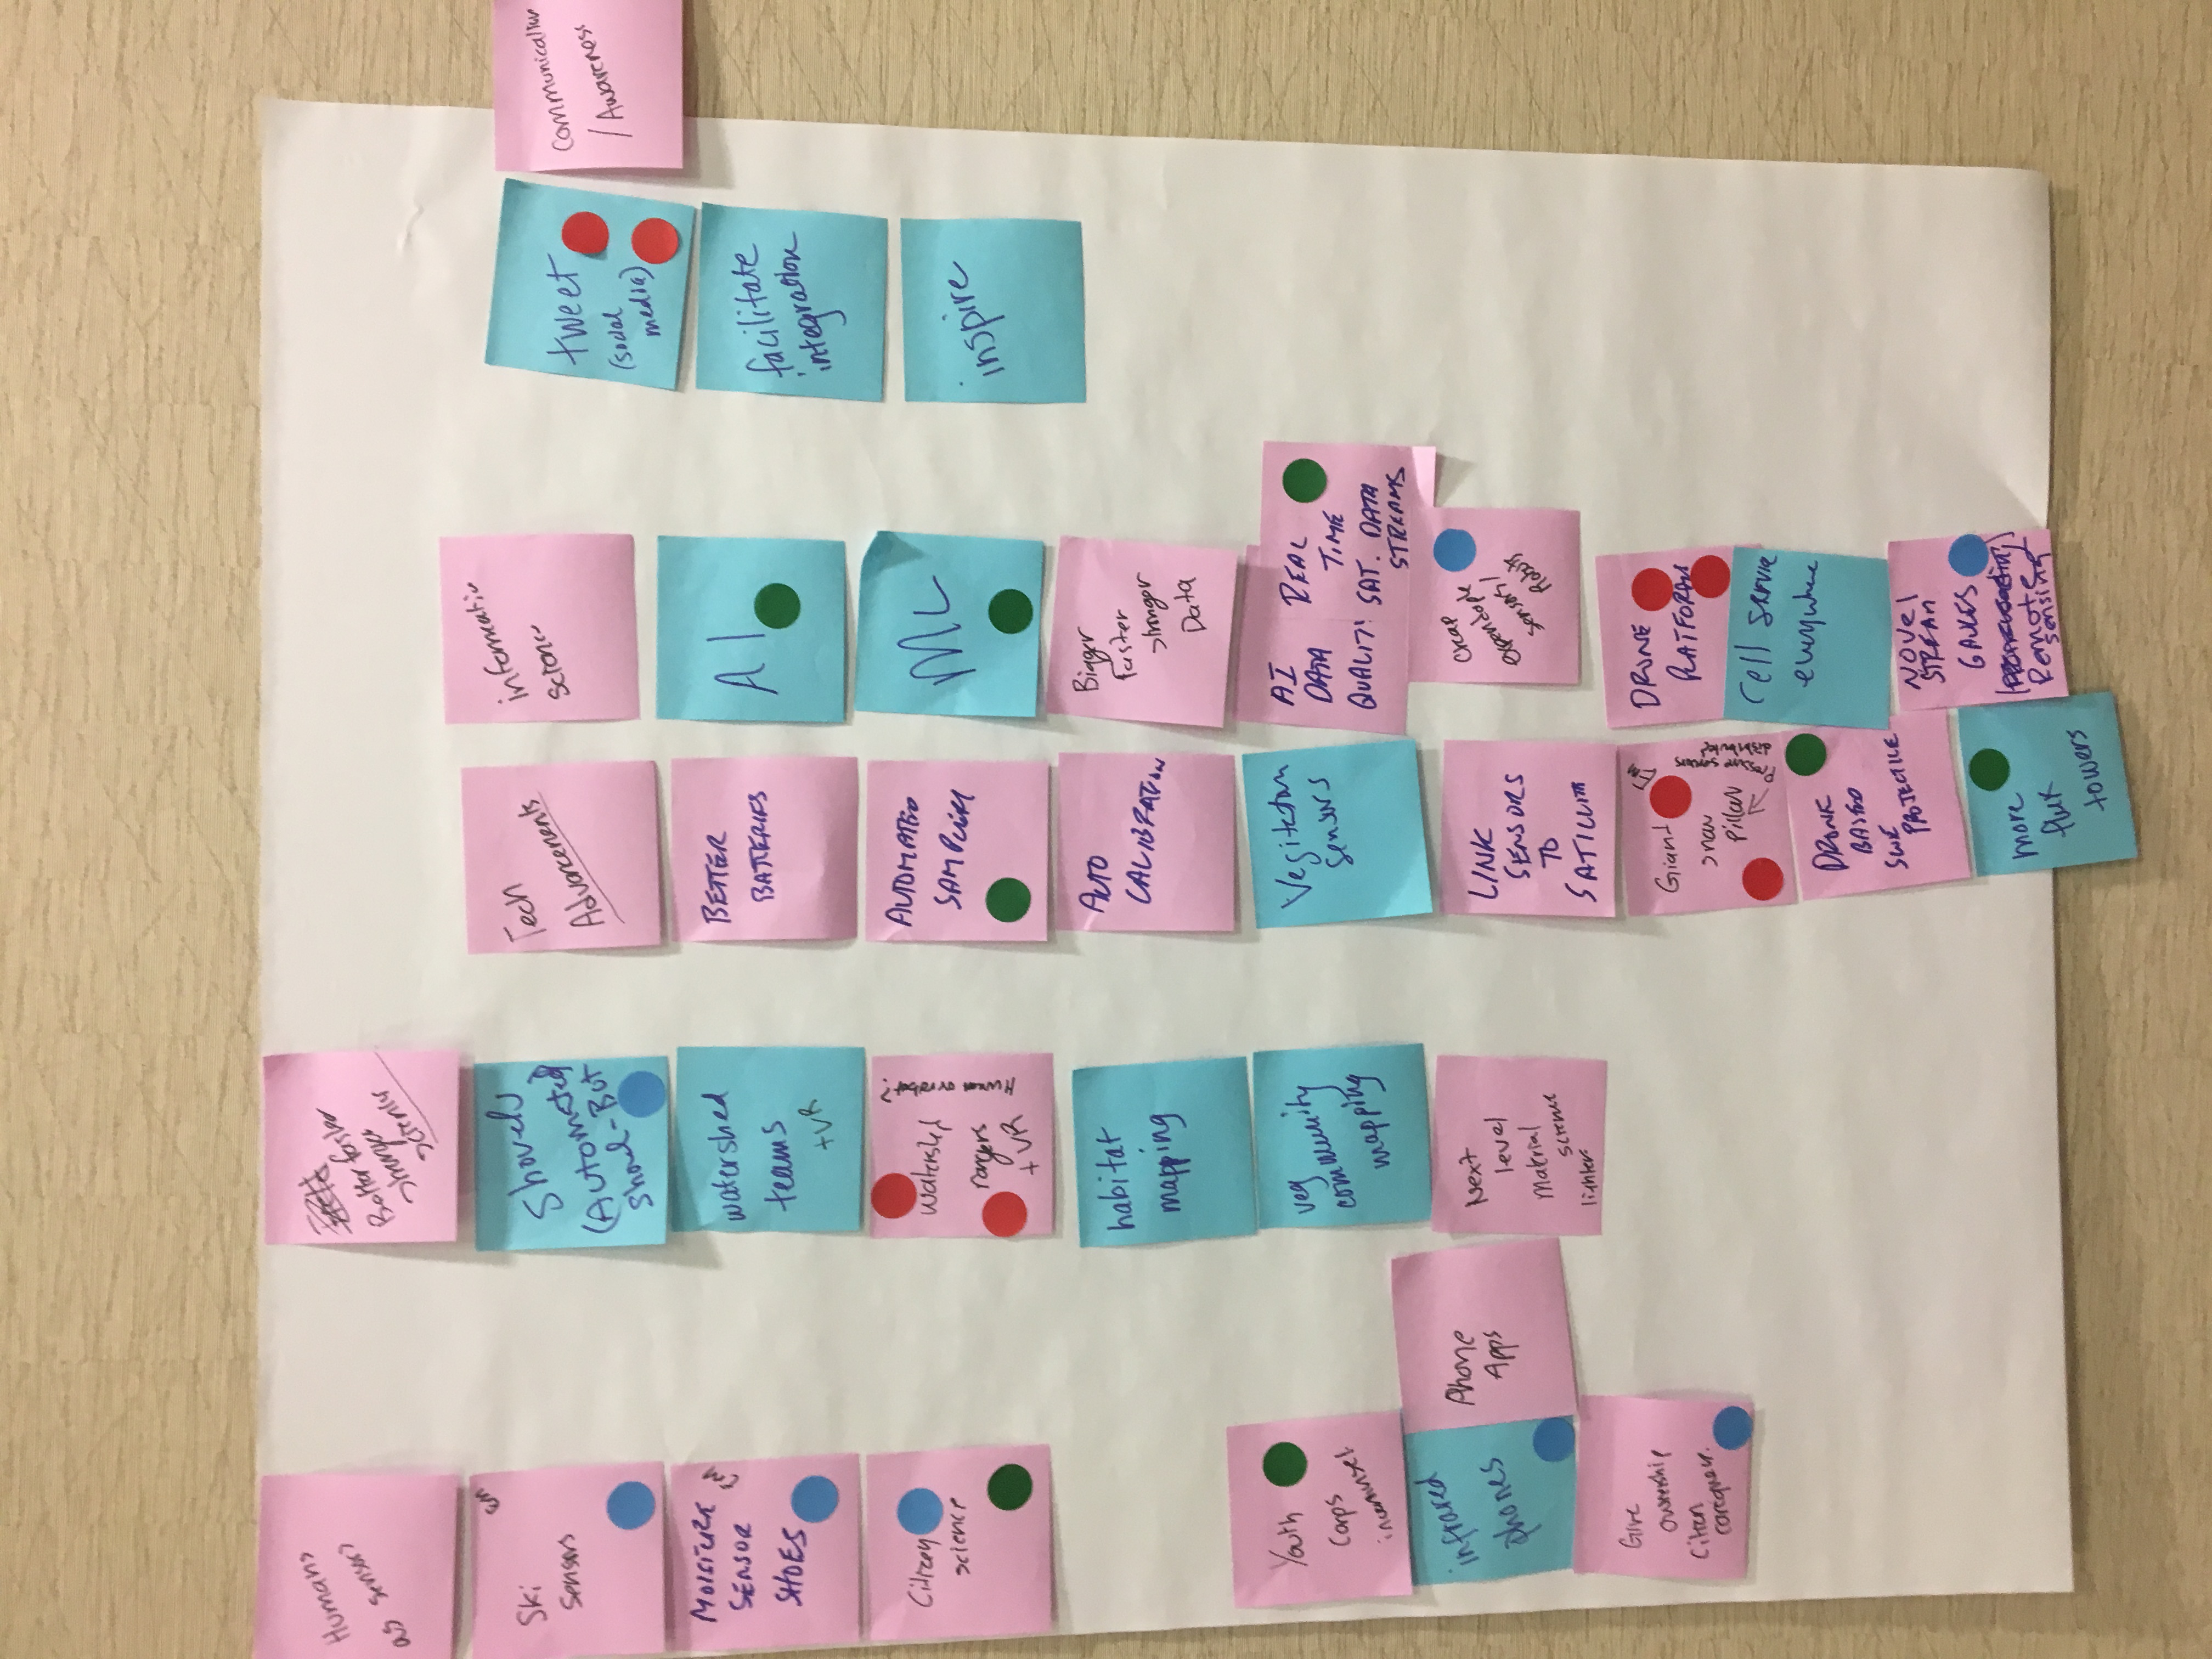 Humans
as sensors
Ski
Sensors
EM
MOISTURE
SENSOR
SHOES
EM
Citizen
science
Youth
Corps
infrared
phones
Phone
Apps
Give
ownership
Citizen
Better faster
stronger
science
Shovels
(Automated
Shovel-Bot
watershed
teams
+VR
Watershed
rangers
+ VR
Human or robot?
habitat
mapping
veg
community
mapping
Next
level
Material
science
lighter
Tech
Advancements
BETTER
BATTERIES
AUTOMATED
SAMPLING
AUTO
CALIBRATION
Vegitation
Sensors
LINK
SENSORS
TO
SATILLITE
Giant
snow
pillow
EM
Pressure sensors
distributed
DRONE
BASED
SWE
PROJECTILE
more
flux
towers
information
science
AI
ML
Bigger
faster
stronger
Data
AI
DATA
QUALITY
REAL
TIME
SAT. DATA
STREAMS
Cheap
expendable
sensors/
Robots
DRONE
PLATFORMS
Cell service
everywhere
NOVEL
STREAM
GAUGES
Remote
sensing
tweet
(social
media)
facilitate
integration
inspire
Communication
/Awareness